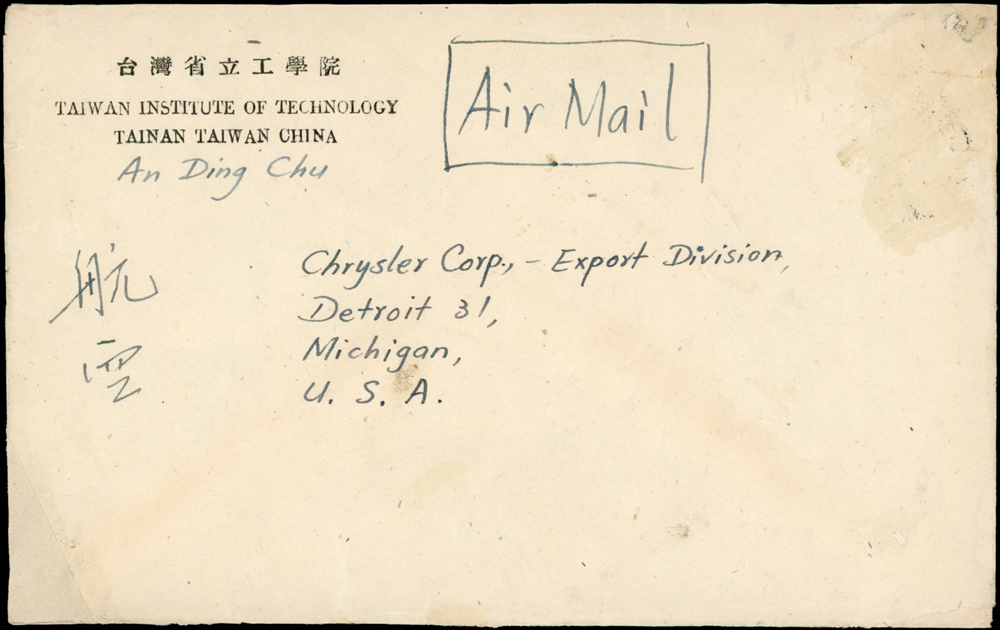 台灣省立工學院
TAIWAN INSTITUTE OF TECHNOLOGY
TAINAN TAIWAN CHINA
An Ding Chu
Air Mail
航
空
Chrysler Corp., - Export Division,
Detroit 31,
Michigan,
U. S. A.